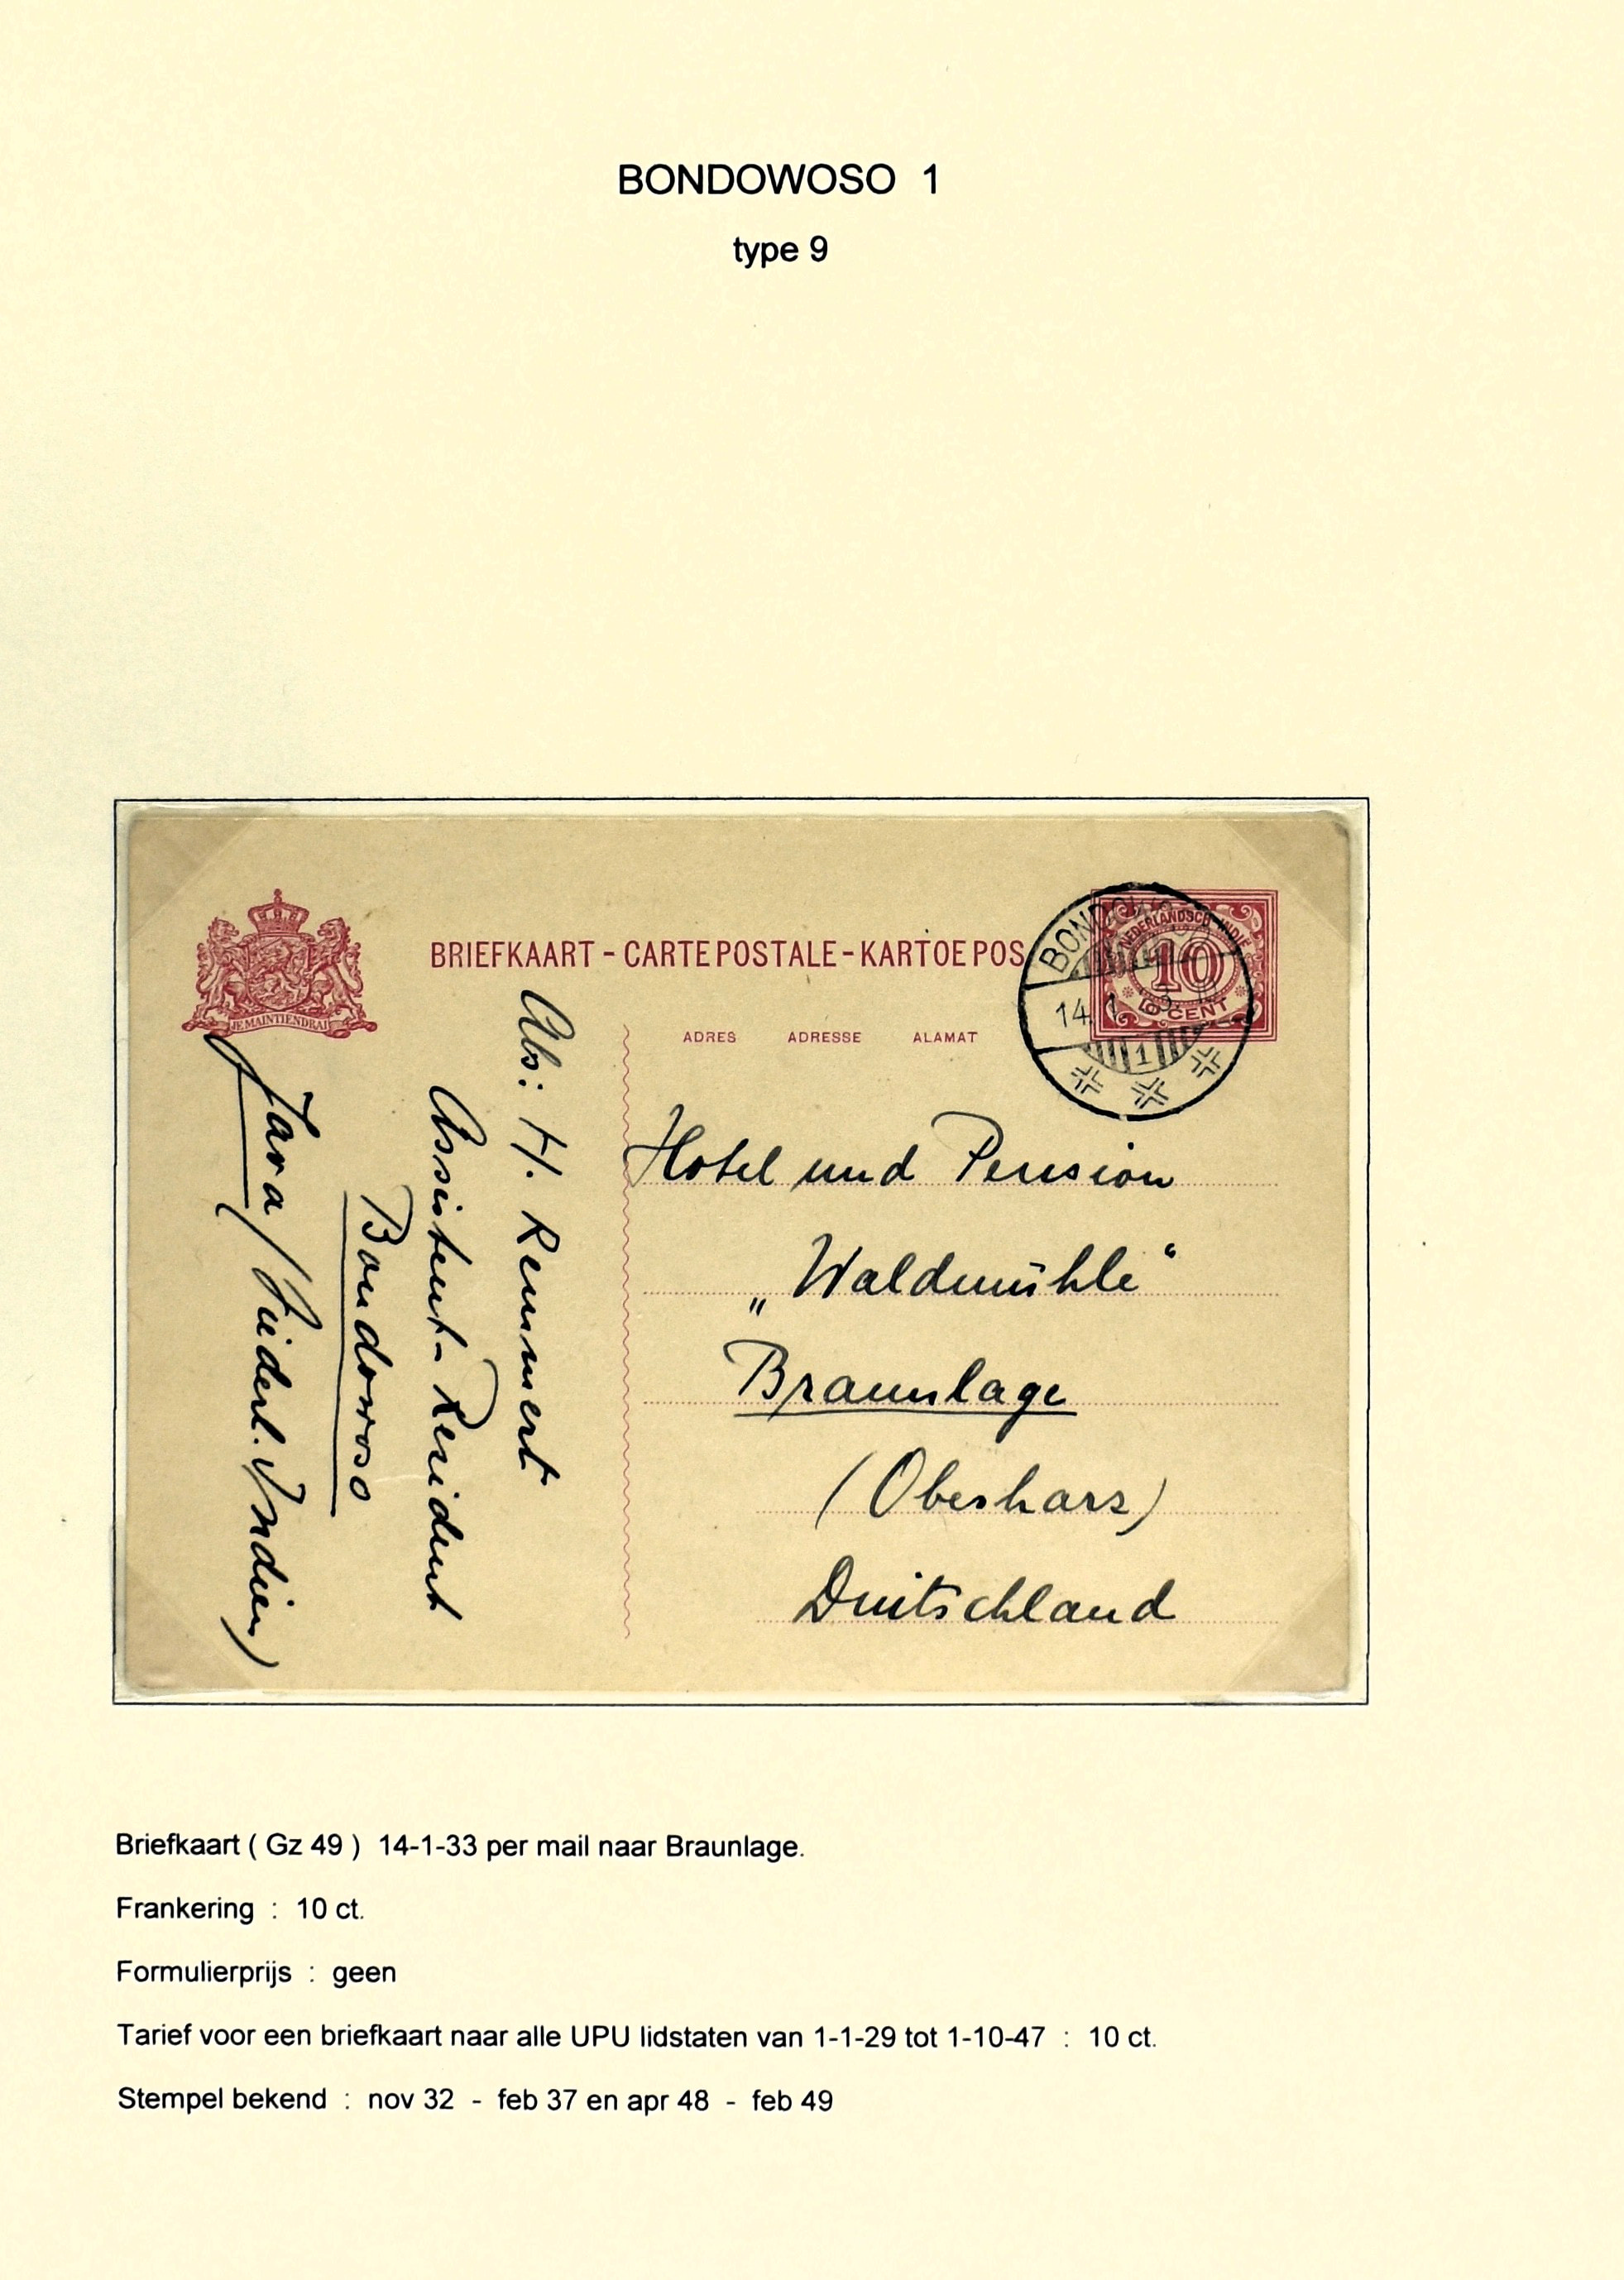 BONDOWOSO 1
type 9
BRIEFKAART - CARTE POSTALE - KARTOE POS
JE MAINTIENDRAI
ADRES ADRESSE ALAMAT
NEDERLANDSCH-INDIË
10
CENT
BONDOWO
14. 1
1
Hotel und Pension
„Waldmühle“
Braunlage
(Oberharz)
Duitschland
Abs: H. Remmert
Assistent-Resident
Bondowoso
Java (Niederl. Indien)
Briefkaart ( Gz 49 ) 14-1-33 per mail naar Braunlage.
Frankering : 10 ct.
Formulierprijs : geen
Tarief voor een briefkaart naar alle UPU lidstaten van 1-1-29 tot 1-10-47 : 10 ct.
Stempel bekend : nov 32 - feb 37 en apr 48 - feb 49